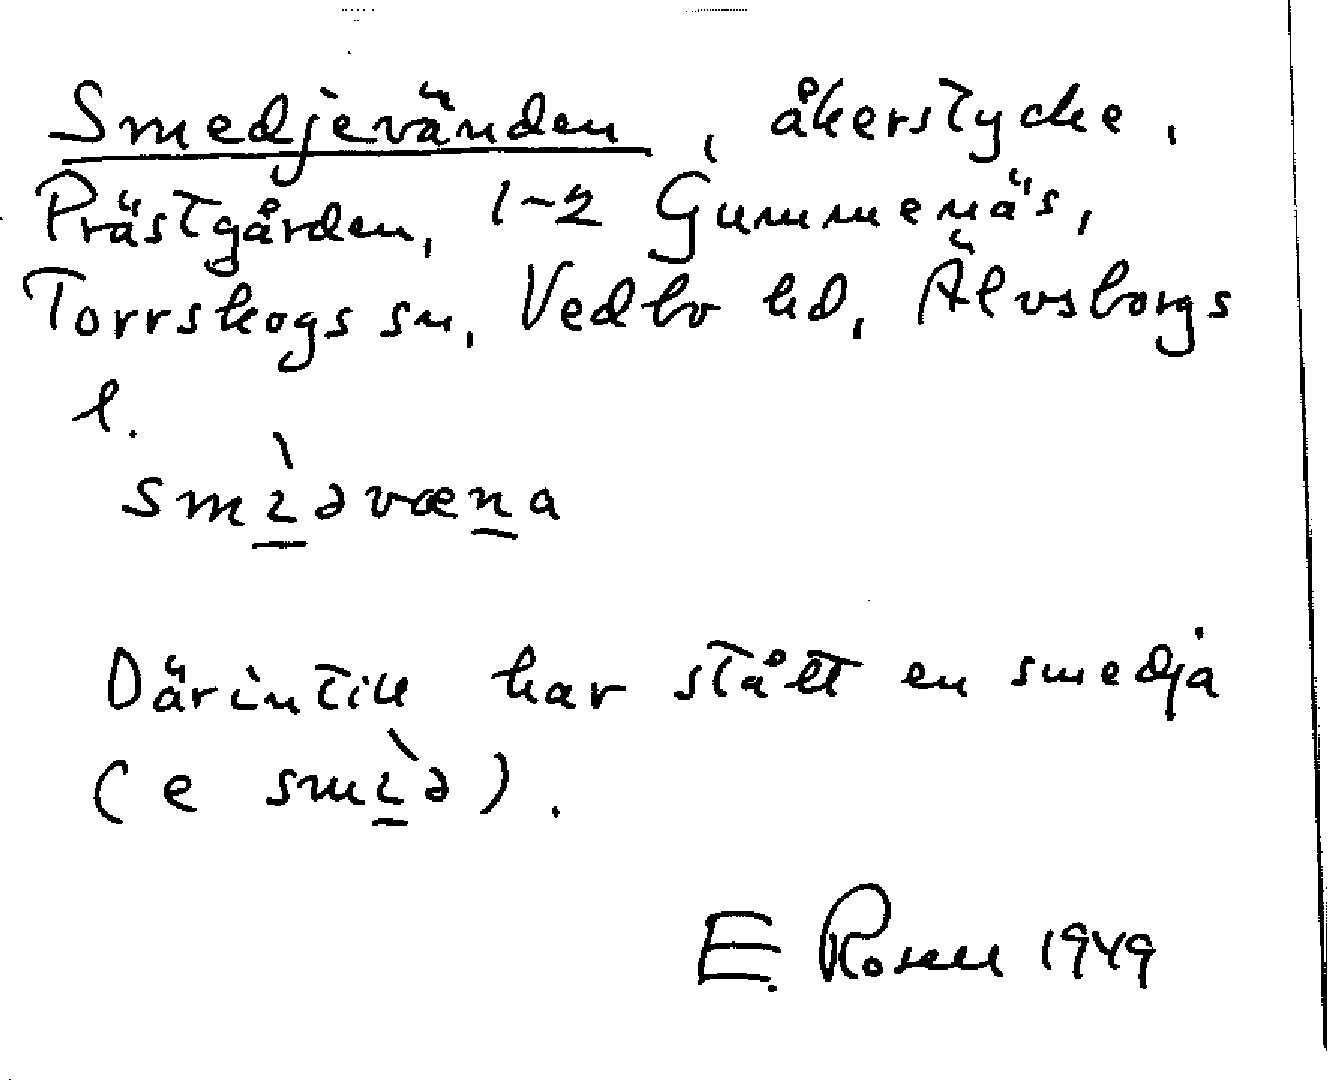 Smedjevänden, åkerstycke,
Prästgården, 1-2 Gummenäs,
Torrskogs sn, Vedbo hd, Älvsborgs
l.
smı̀əvæna
Därintill har stått en smedja
(e smı̀ə).
E. Rosen 1949